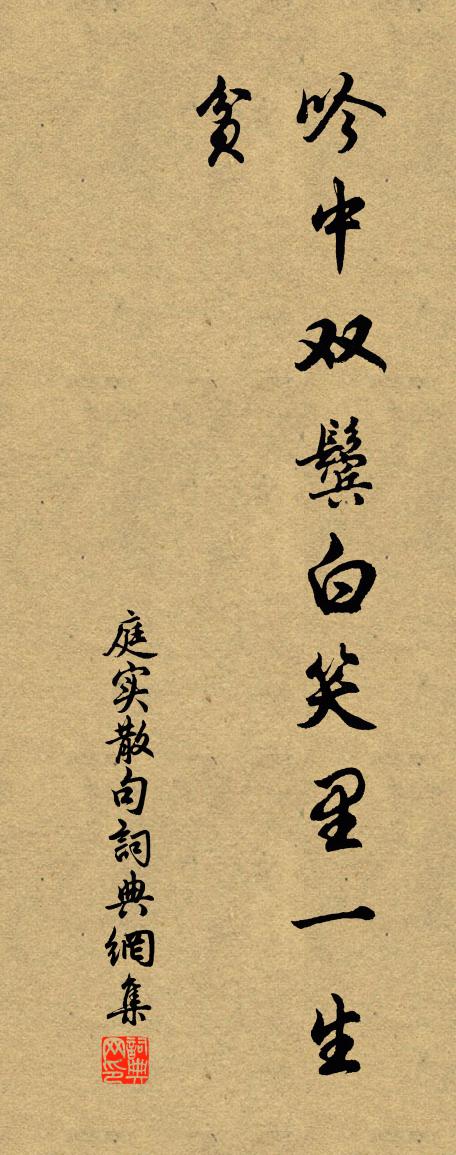 吟中双鬓白笑里一生
贫
庭实散句詞典網集
詞典网印